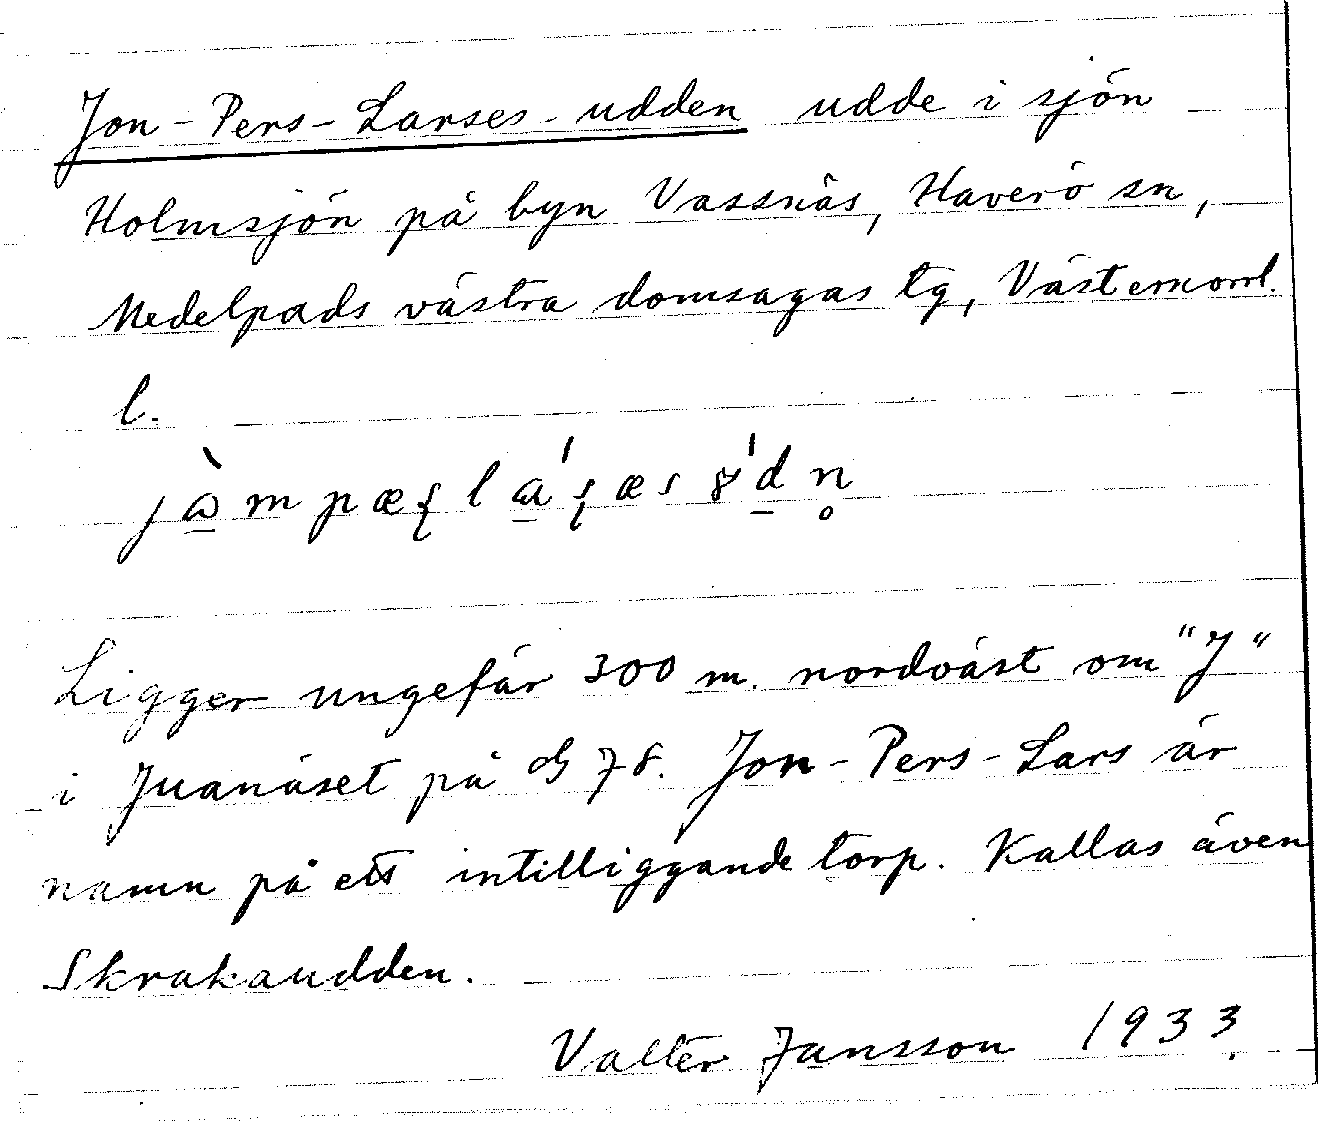 Jon-Pers-Larses-udden udde i sjön
Holmsjön på byn Vassnäs, Haverö sn,
Medelpads västra domsagas tg, Västernorrl.
l.
Ligger ungefär 300 m. nordväst om "J"
i Juanäset på 78. Jon-Pers-Lars är
namn på ett intilliggande torp. Kallas även
Skrakaudden.
Valter Jansson 1933.